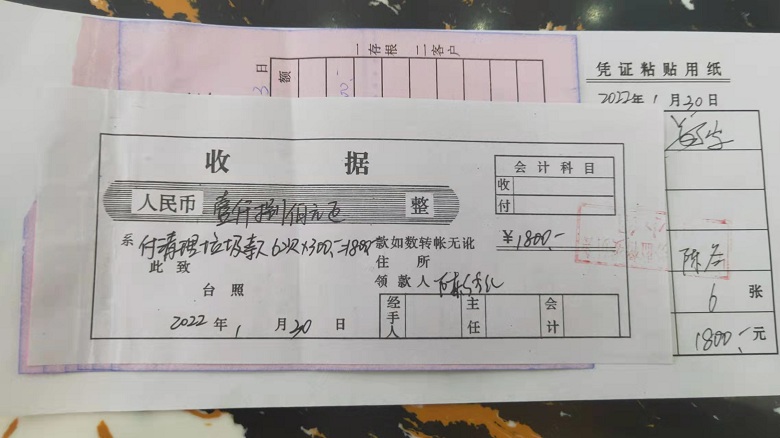 一存根 二客户
日
额
凭证粘贴用纸
2022年1月30日
收 据
会计科目
收
付
人民币 壹仟捌佰元正 整
¥1800.-
系 付清理垃圾款6次×300.-=1800.- 款如数转帐无讹
此致 住所
台照 领款人
2022年1月30日
经手人 主任 会计
6 张
1800.- 元